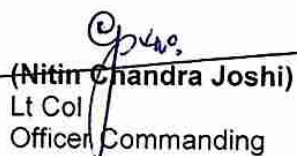 (Nitin Chandra Joshi)
Lt Col
Officer Commanding